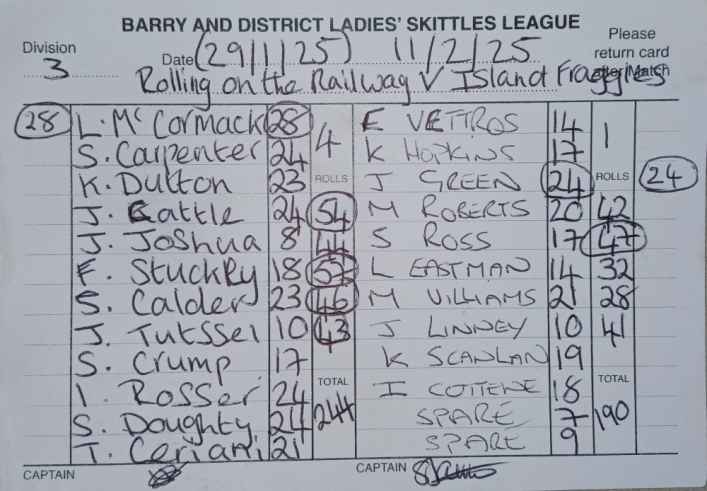 BARRY AND DISTRICT LADIES' SKITTLES LEAGUE
Division 3
Date (29/1/25) 11/2/25
Please return card after Match
Rolling on the Railway V Island Fraggles
28 L. McCormack 28 4 E VETTROS 14 1
S. Carpenter 24 K HOPKINS 17
K. Dutton 23 ROLLS J GREEN 24 ROLLS 24
J. Cattle 24 54 M ROBERTS 20 42
J. Joshua 8 44 S ROSS 17 47
F. Stuckey 18 57 L EASTMAN 14 32
S. Calder 23 46 M WILLIAMS 21 28
J. Tutssel 10 43 J LINNEY 10 41
S. Crump 17 K SCANLAN 19
I. Rosser 24 TOTAL I 18 TOTAL
S. Doughty 24 244 SPARE 7 190
T. Ceriani 21 SPARE 9
CAPTAIN CAPTAIN